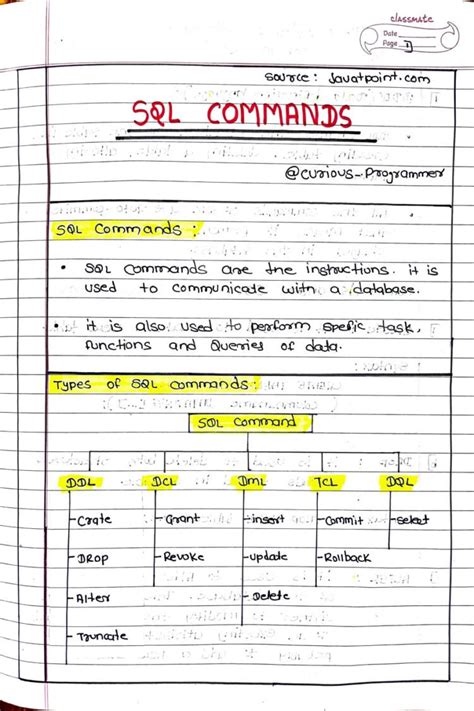 classmate
Date
Page 1
Source : Javatpoint.com
SQL COMMANDS
@curious_Programmer
SQL Commands :
• SQL Commands are the instructions. it is
used to communicate with a database.
• it is also used to perform spefic task,
functions and Queries of data.
Types of SQL Commands :
SQL Command
DDL DCL DML TCL DQL
Crate Grant insert Commit select
DROP Revoke update Rollback
Alter Delete
Truncate